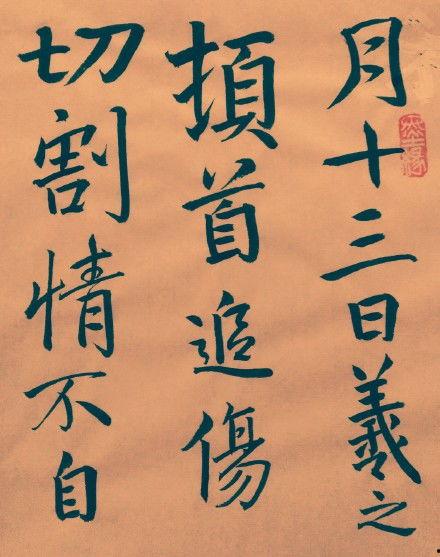 月十三日羲之
頓首追傷
切割情不自